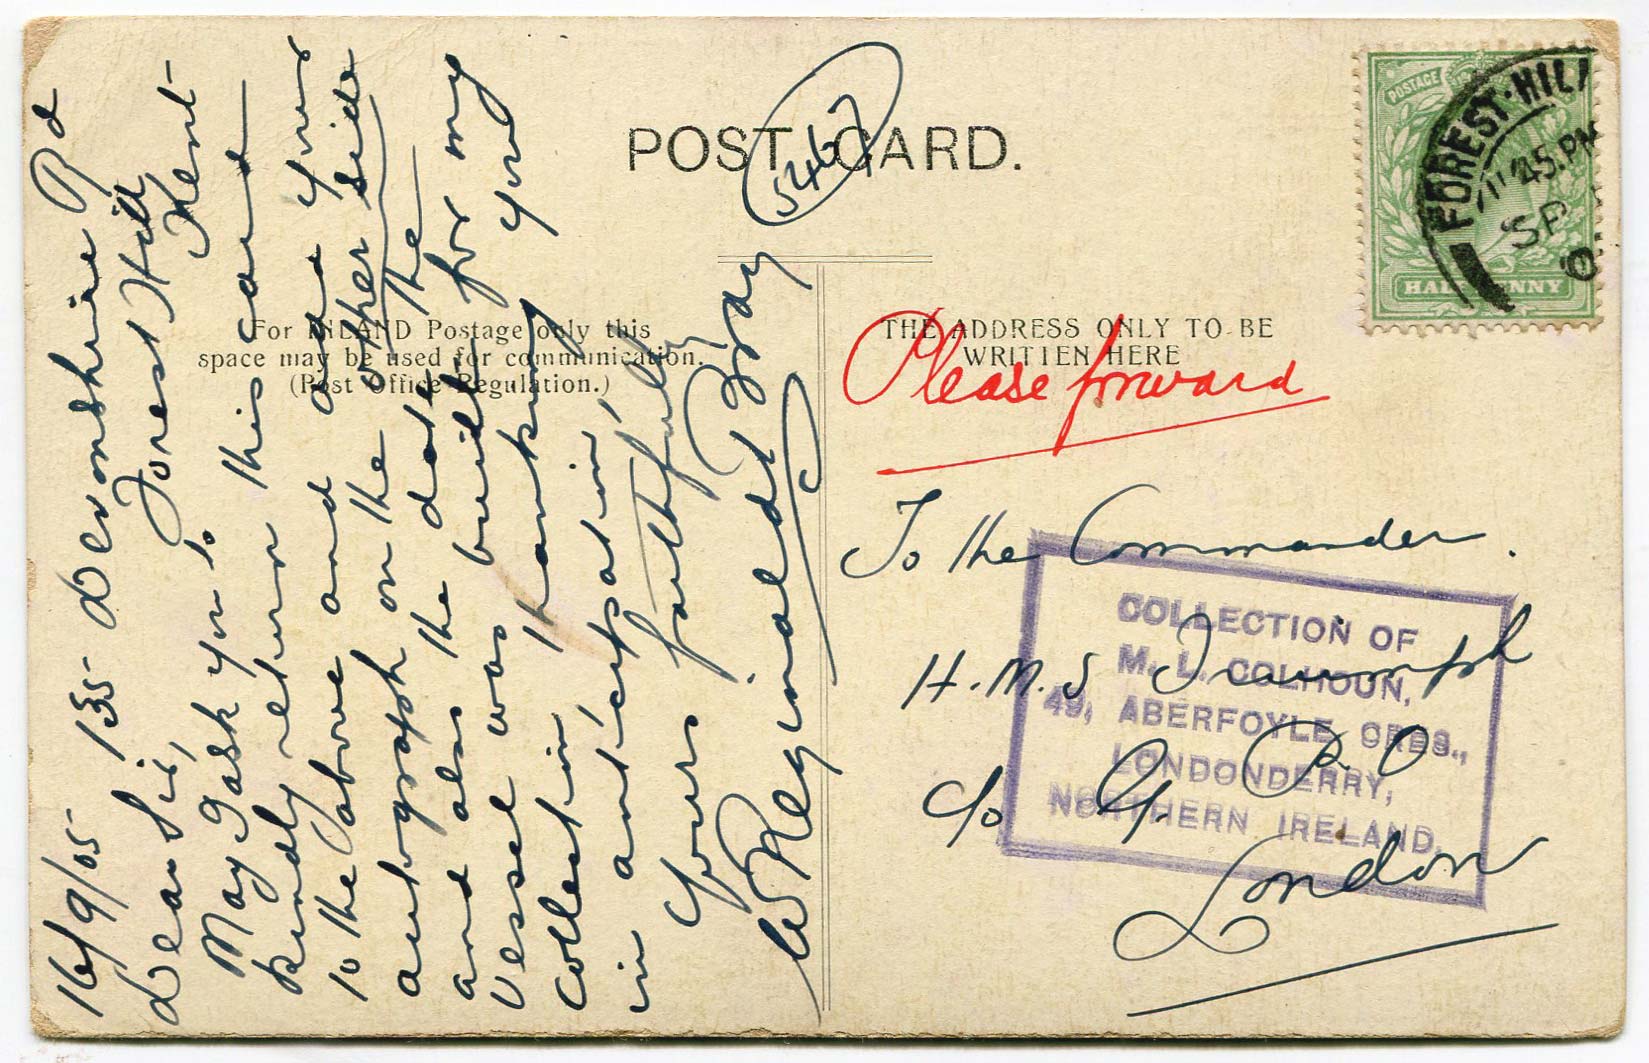 POST CARD.
5467
For INLAND Postage only this
space may be used for communication.
(Post Office Regulation.)
THE ADDRESS ONLY TO BE
WRITTEN HERE
16/9/05 135 Devonshire Rd
Forest Hill
Kent
Dear Sir,
May I ask you to
kindly return this card
to the above and add your
autograph on the other side
and also the date the
vessel was built for my
collection thanking you
in anticipation,
Yours faithfully
W Reginald Bray
POSTAGE
HALFPENNY
FOREST·HILL
11 45.PM
SP
0
Please forward
To the Commander.
H.M.S Triumph
c/o G.P.O
London
COLLECTION OF
M. L. COLHOUN,
49, ABERFOYLE CRES.,
LONDONDERRY,
NORTHERN IRELAND.